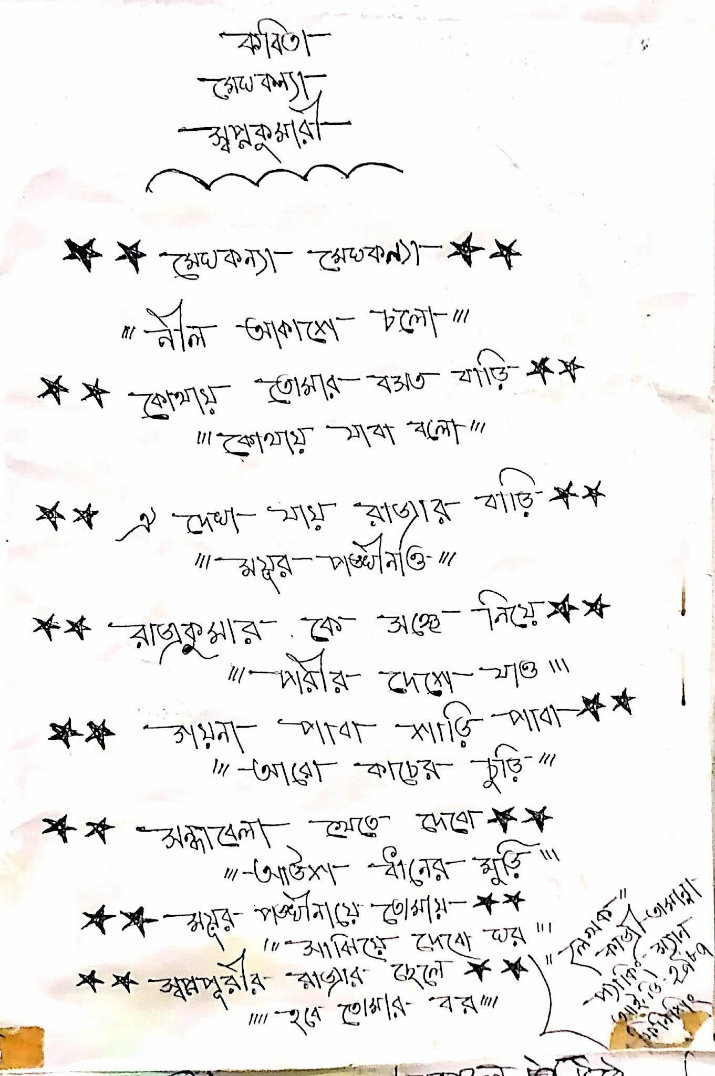 কবিতা
মেঘকন্যা
স্বপ্নকুমারী
মেঘকন্যা মেঘকন্যা
"' নীল আকাশে চলো "'
কোথায় তোমার বসত বাড়ি
"' কোথায় যাবা বলো "'
ঐ দেখা যায় রাজার বাড়ি
"' ময়ূর পঙ্খীনাও "'
রাজকুমার কে সঙ্গে নিয়ে
"' পরীর দেশে যাও "'
গয়না পাবা শাড়ি পাবা
"' আরো কাচের চুড়ি "'
সন্ধাবেলা খেতে দেবো
"' আউশা ধানের মুড়ি "'
ময়ূর পঙ্খীনায়ে তোমায়
"' সাঝিয়ে দেবো ঘর "'
স্বপ্নপূরীর রাজার ছেলে
"" হবে তোমার বর ""
"লেখক"
কাজী তামান্না
প্যাকিং ম্যান
আই,ডি। ২৭৮৭